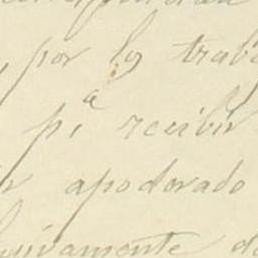 por los trab
pª recibir
apoderado
ivamente de